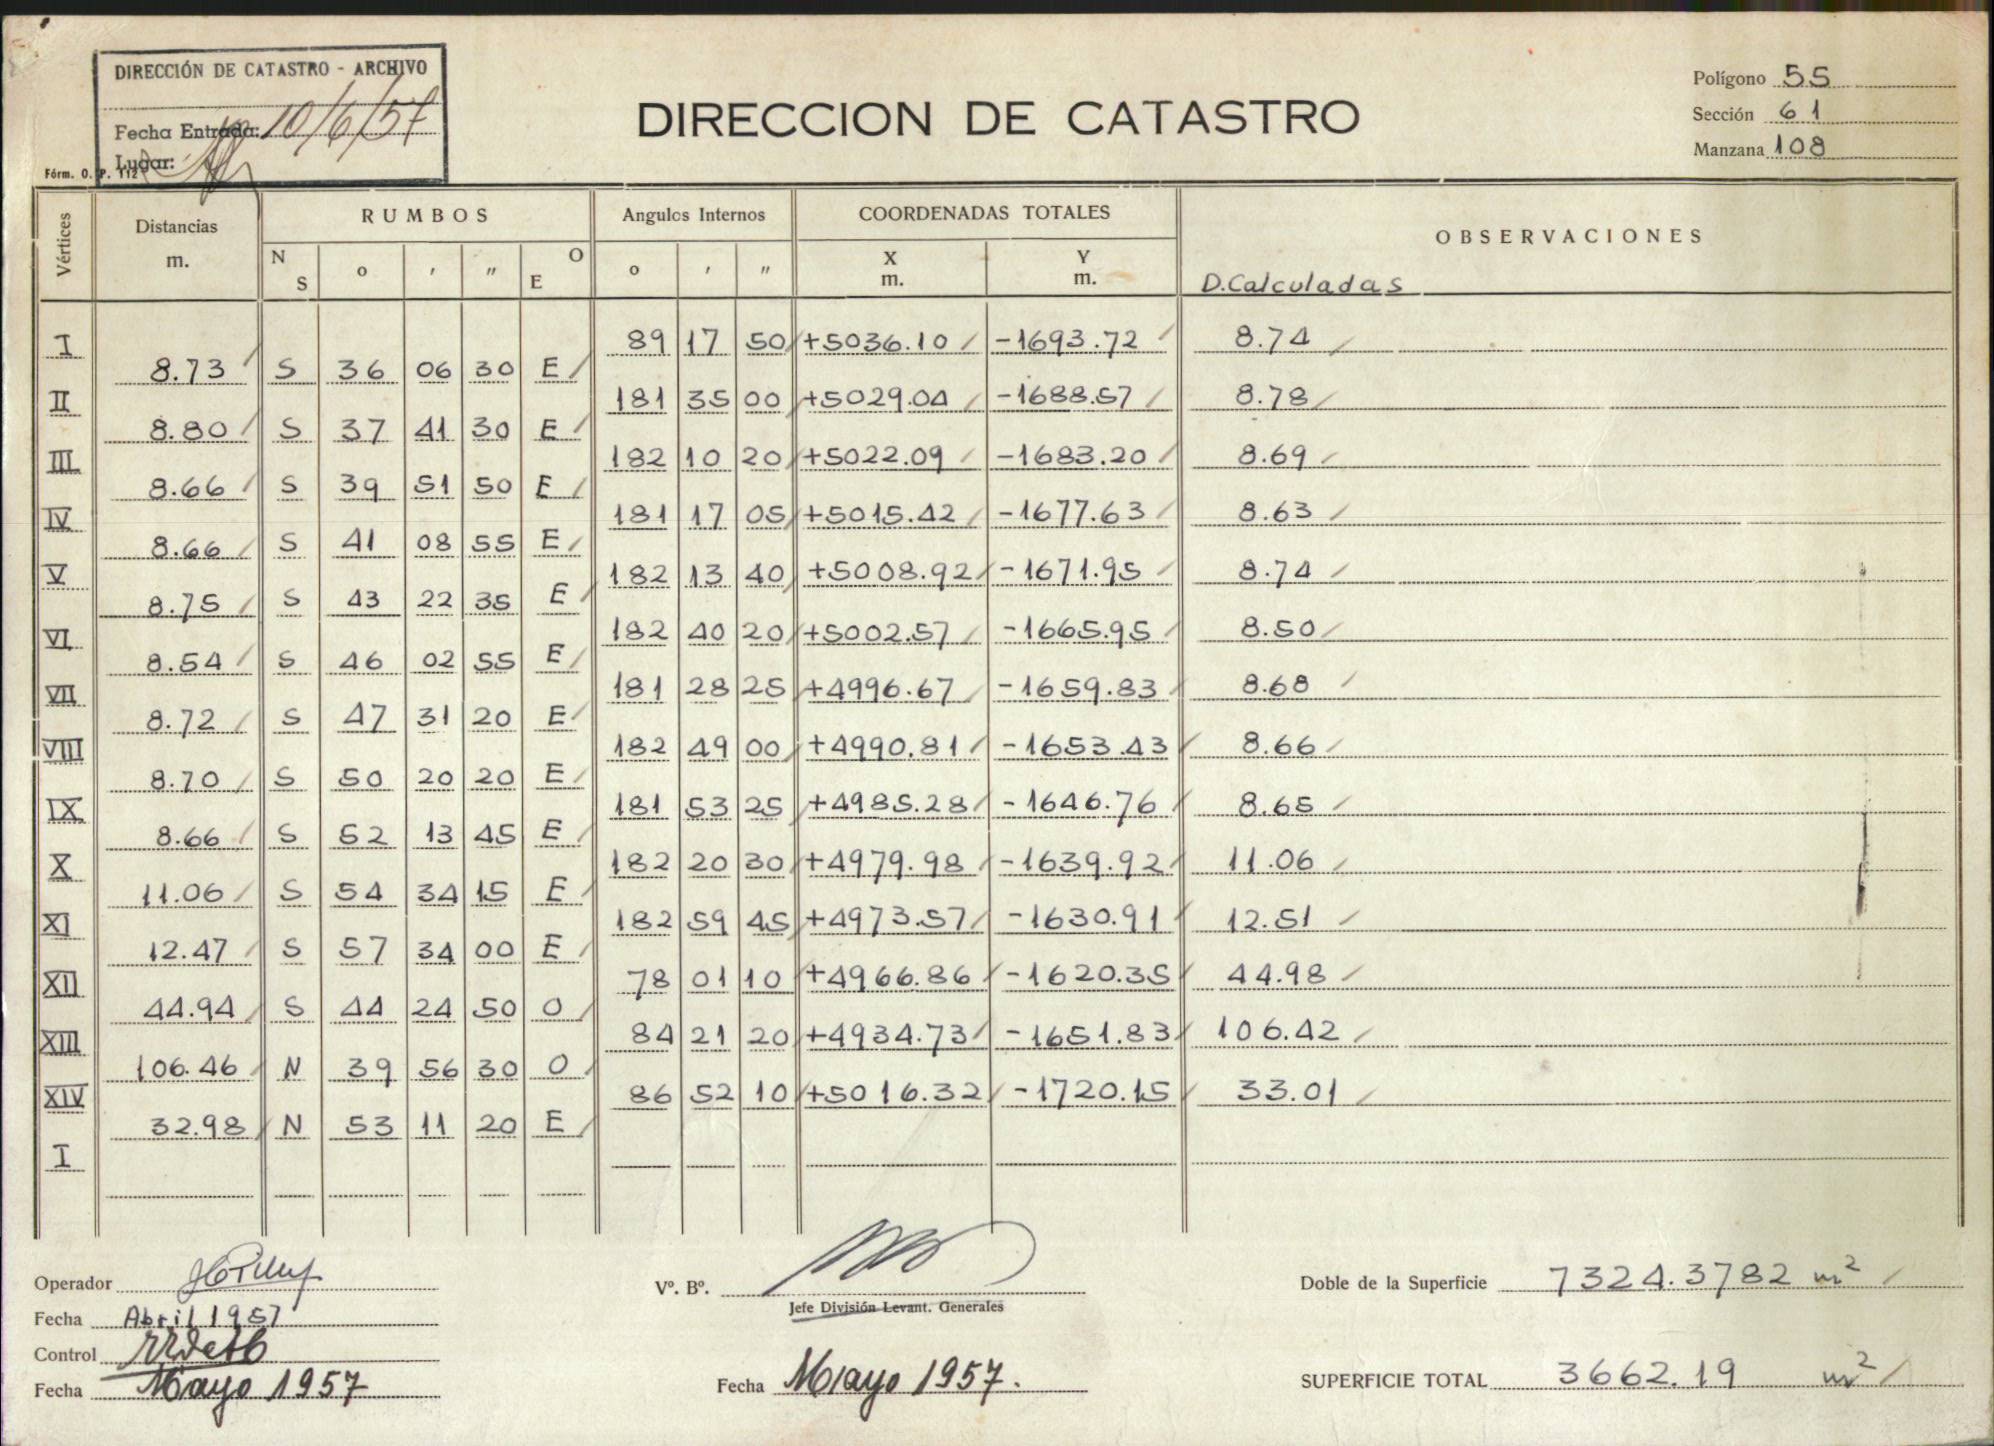 DIRECCIÓN DE CATASTRO - ARCHIVO
Fecha Entrada: 10/6/57
Lugar:
Fórm. O. P. 112
DIRECCION DE CATASTRO
Polígono 55
Sección 61
Manzana 108
Vértices Distancias m. RUMBOS Angulos Internos COORDENADAS TOTALES OBSERVACIONES
N S ° ' " O E ° ' " X m. Y m. D.Calculadas
I 89 17 50 +5036.10 -1693.72 8.74
8.73 S 36 06 30 E
II 181 35 00 +5029.04 -1688.57 8.78
8.80 S 37 41 30 E
III 182 10 20 +5022.09 -1683.20 8.69
8.66 S 39 51 50 E
IV 181 17 05 +5015.42 -1677.63 8.63
8.66 S 41 08 55 E
V 182 13 40 +5008.92 -1671.95 8.74
8.75 S 43 22 35 E
VI 182 40 20 +5002.57 -1665.95 8.50
8.54 S 46 02 55 E
VII 181 28 25 +4996.67 -1659.83 8.68
8.72 S 47 31 20 E
VIII 182 49 00 +4990.81 -1653.43 8.66
8.70 S 50 20 20 E
IX 181 53 25 +4985.28 -1646.76 8.65
8.66 S 52 13 45 E
X 182 20 30 +4979.98 -1639.92 11.06
11.06 S 54 34 15 E
XI 182 59 45 +4973.57 -1630.91 12.51
12.47 S 57 34 00 E
XII 78 01 10 +4966.86 -1620.35 44.98
44.94 S 44 24 50 O
XIII 84 21 20 +4934.73 -1651.83 106.42
106.46 N 39 56 30 O
XIV 86 52 10 +5016.32 -1720.15 33.01
32.98 N 53 11 20 E
I
Operador
Fecha Abril 1957
Control
Fecha Mayo 1957
Vº. Bº.
Jefe División Levant. Generales
Fecha Mayo 1957.
Doble de la Superficie 7324.3782 m²
SUPERFICIE TOTAL 3662.19 m²